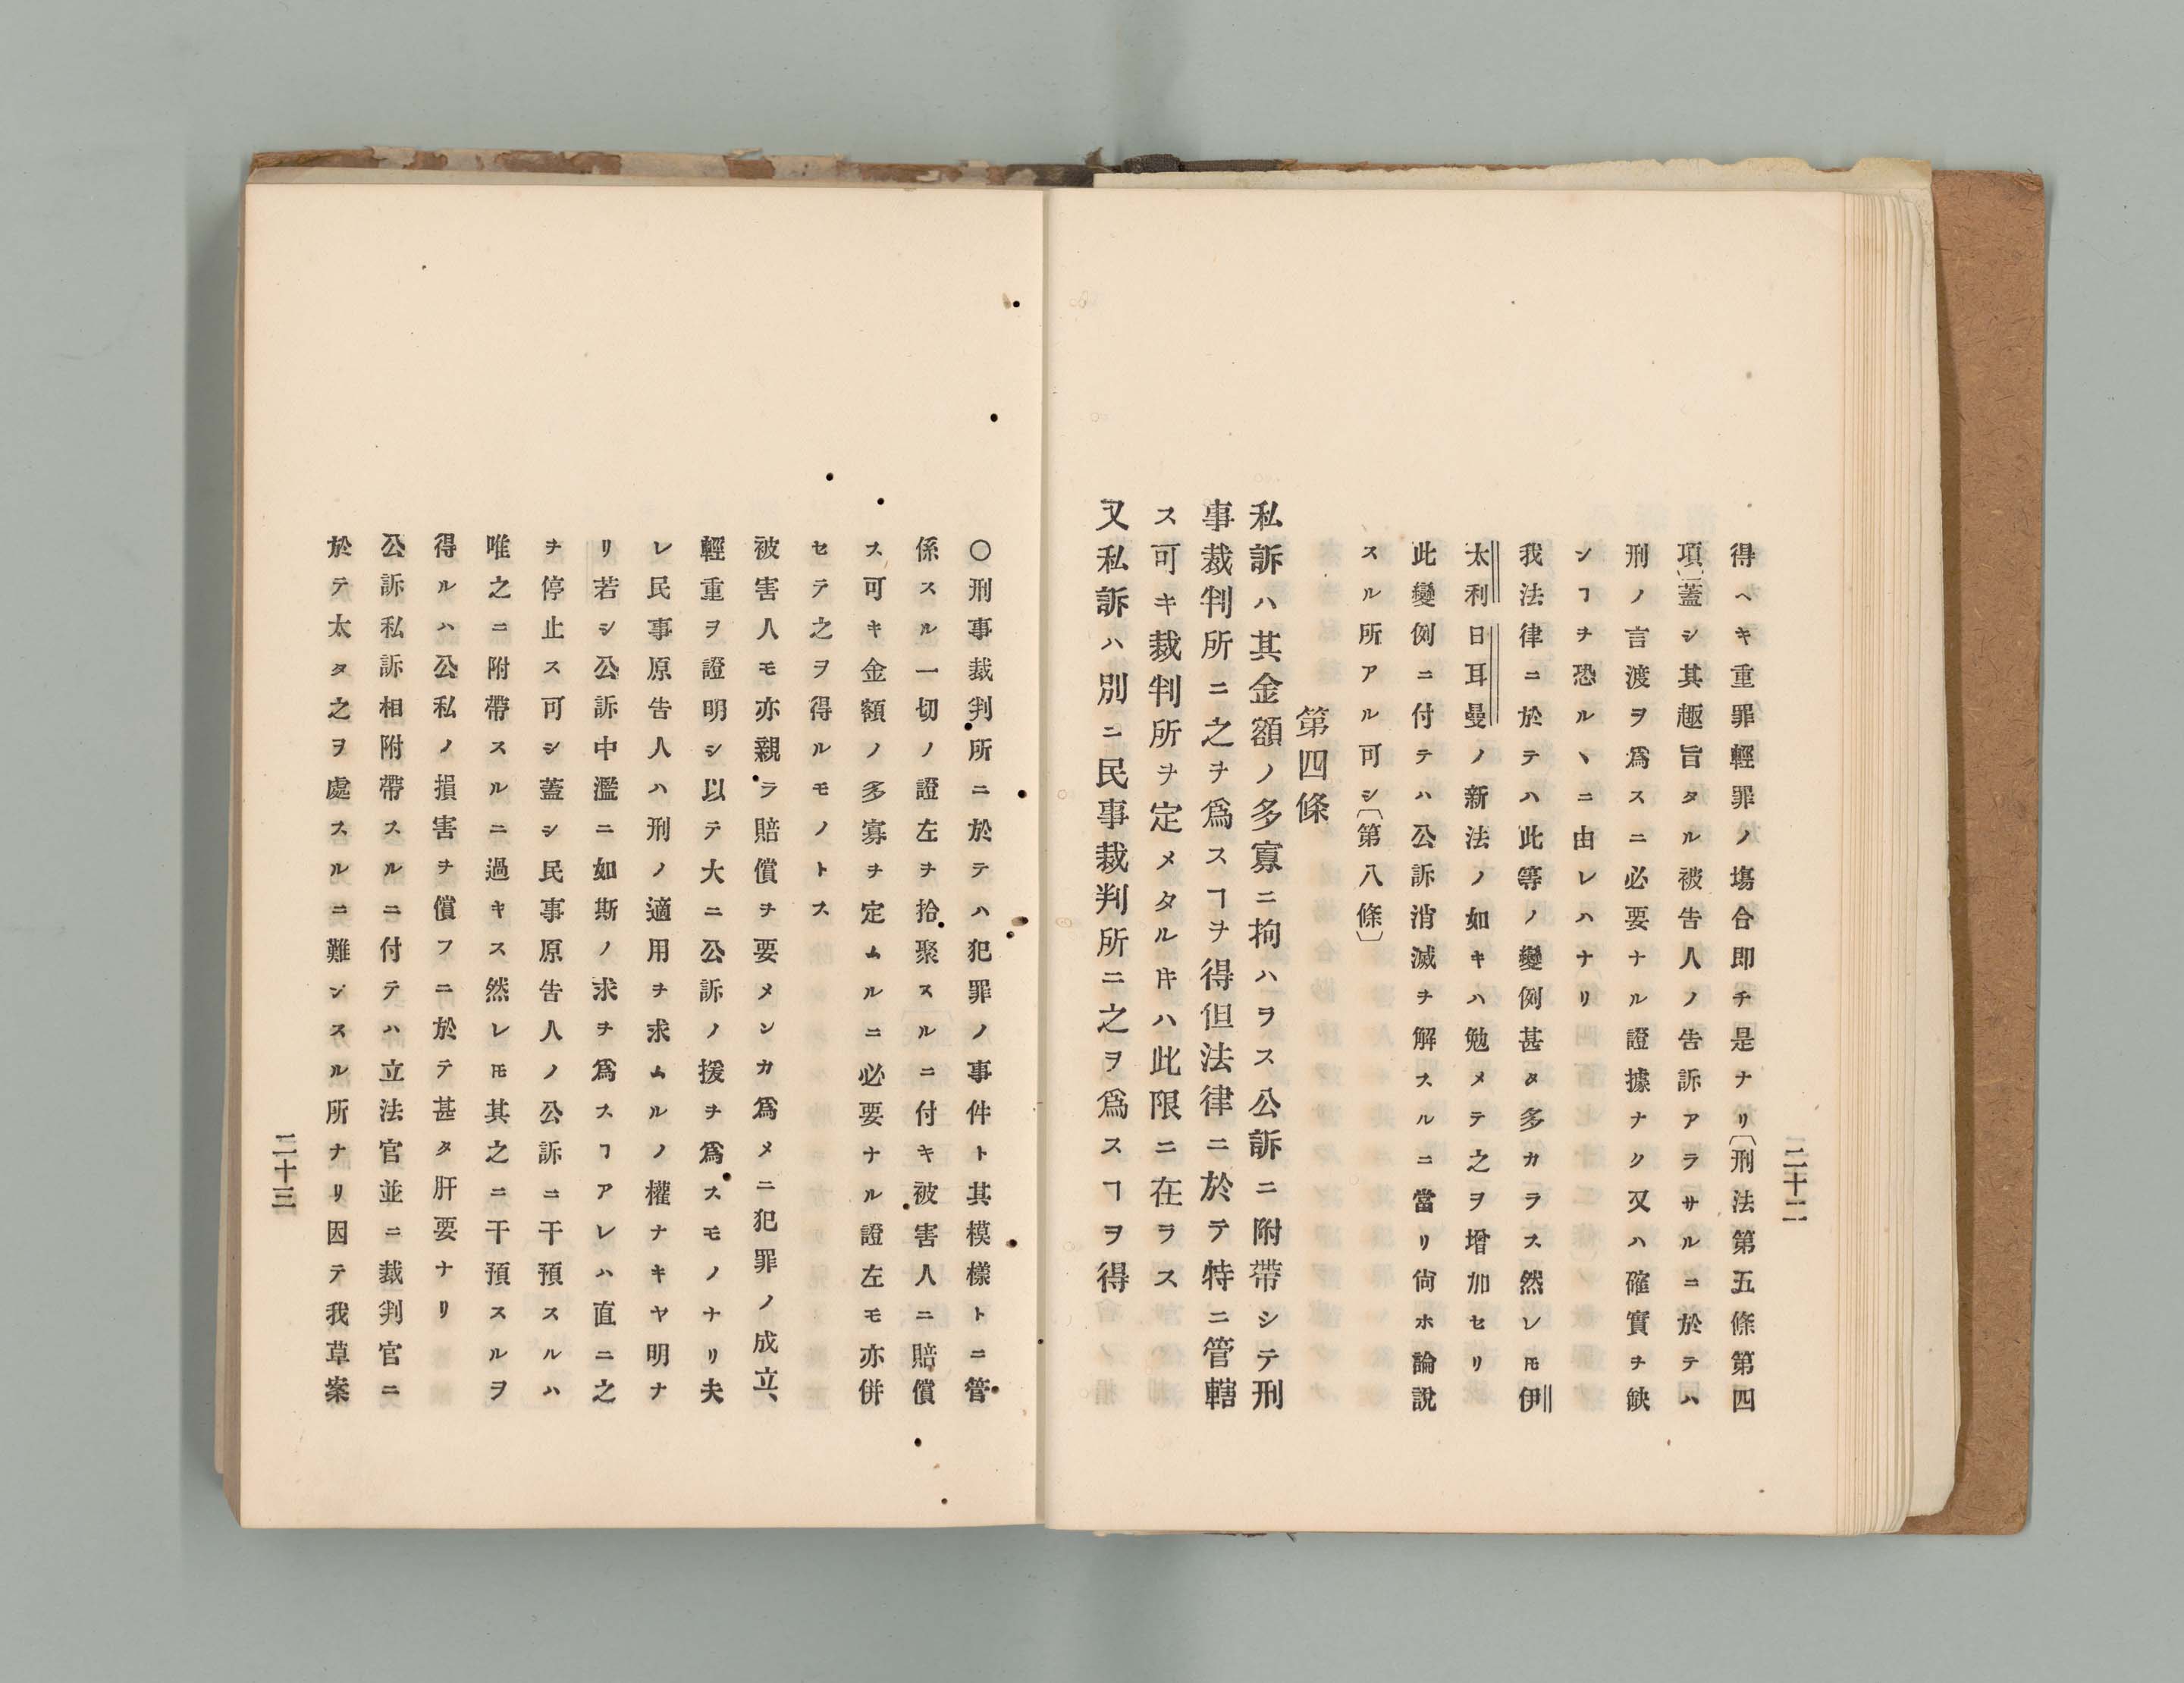 二十二
得ヘキ重罪輕罪ノ塲合即チ是ナリ〔刑法第五條第四
項〕蓋シ其趣旨タル被告人ノ告訴アラサルニ於テハ
刑ノ言渡ヲ爲スニ必要ナル證據ナク又ハ確實ヲ缺
シヿヲ恐ルヽニ由レハナリ
我法律ニ於テハ此等ノ變例甚タ多カラス然レ𪜈伊
太利日耳曼ノ新法ノ如キハ勉メテ之ヲ增加セリ
此變例ニ付テハ公訴消滅ヲ解スルニ當リ尙ホ論說
スル所アル可シ〔第八條〕
第四條
私訴ハ其金額ノ多寡ニ拘ハヲス公訴ニ附帶シテ刑
事裁判所ニ之ヲ爲スヿヲ得但法律ニ於テ特ニ管轄
ス可キ裁判所ヲ定メタルキハ此限ニ在ラス
又私訴ハ別ニ民事裁判所ニ之ヲ爲スヿヲ得
〇刑事裁判所ニ於テハ犯罪ノ事件ト其模樣トニ管
係スル一切ノ證左ヲ拾聚スルニ付キ被害人ニ賠償
ス可キ金額ノ多寡ヲ定ムルニ必要ナル證左モ亦併
セテ之ヲ得ルモノトス
被害人モ亦親ラ賠償ヲ要メンカ爲メニ犯罪ノ成立、
輕重ヲ證明シ以テ大ニ公訴ノ援ヲ爲スモノナリ夫
レ民事原告人ハ刑ノ適用ヲ求ムルノ權ナキヤ明ナ
リ若シ公訴中濫ニ如斯ノ求ヲ爲スヿアレハ直ニ之
ヲ停止ス可シ蓋シ民事原告人ノ公訴ニ干預スルハ
唯之ニ附帶スルニ過キス然レ𪜈其之ニ干預スルヲ
得ルハ公私ノ損害ヲ償フニ於テ甚タ肝要ナリ
公訴私訴相附帶スルニ付テハ立法官並ニ裁判官ニ
於テ太タ之ヲ處スルニ難ンスル所ナリ因テ我草案
二十三